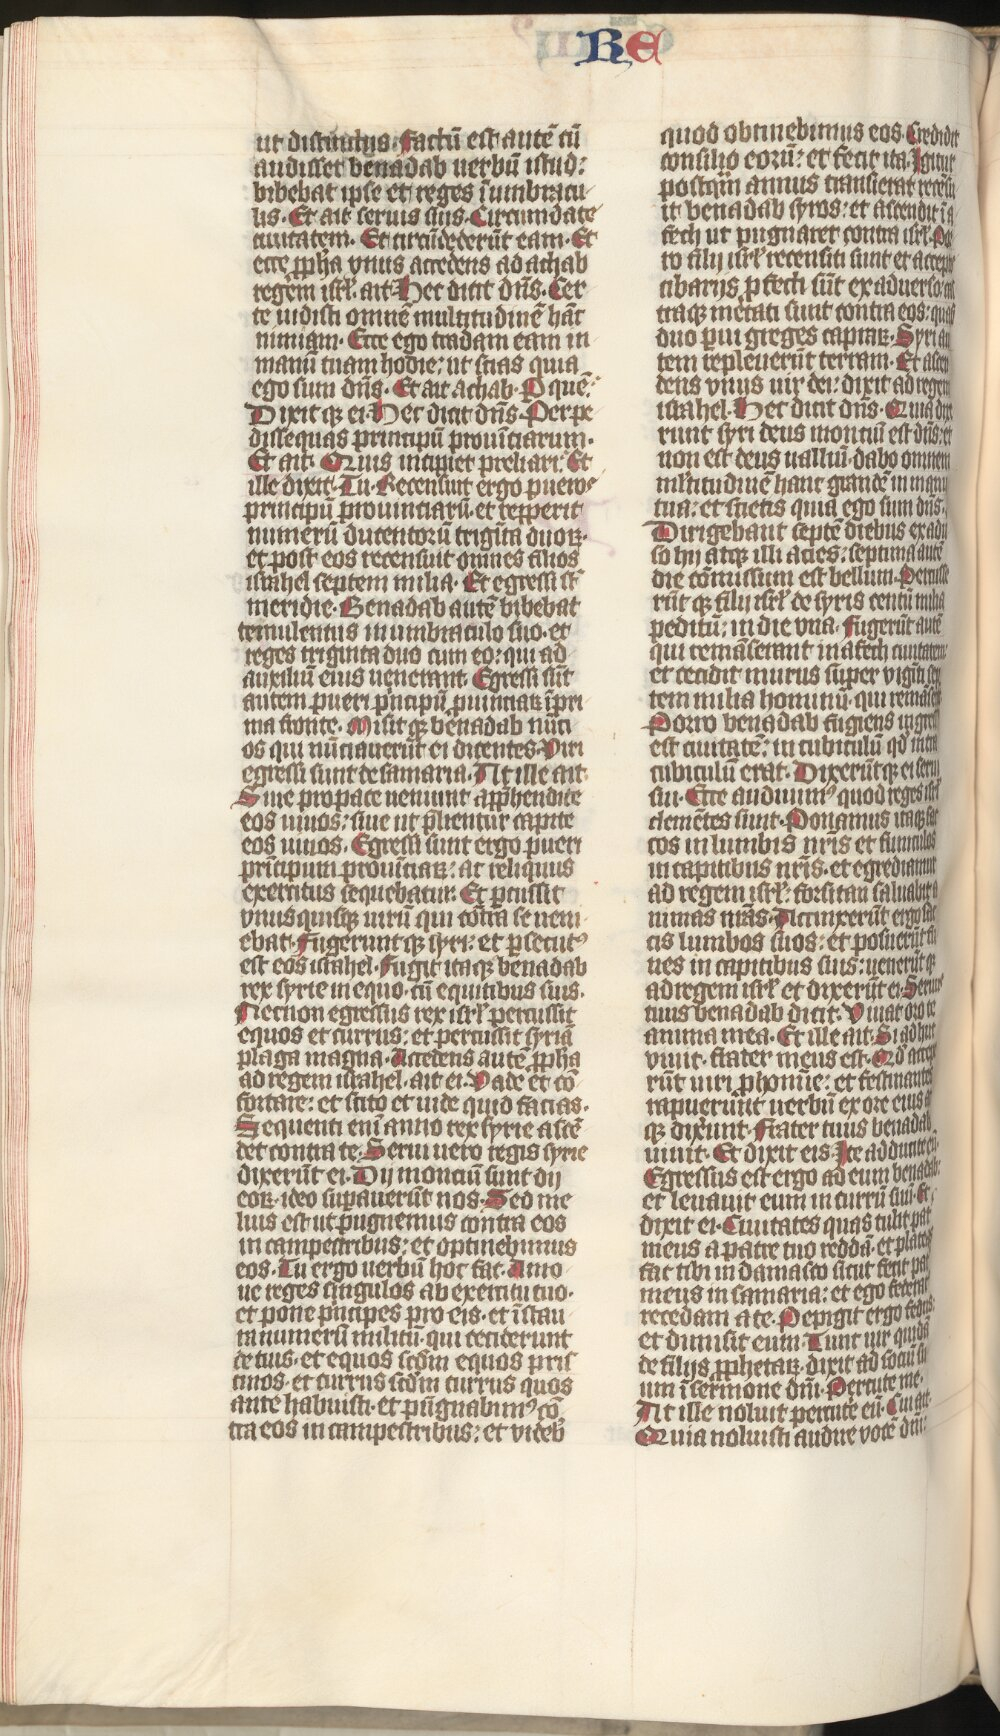 RE
ut distinctus. Factū est autē cū
audisset benadab uerbū istud:
bibebat ipse et reges ī umbracu
lis. Et ait seruis suis. Circumdate
ciuitatem. Et circūdederūt eam. Et
ecce ꝓpha vnus accedens ad achab
regem isrl̄. ait. Hec dicit dn̄s. Cer
te uidisti omnē multitudinē hāc
nimiam. Ecce ego tradam eam in
manū tuam hodie: ut scias quia
ego sum dn̄s. Et ait achab. P quē:
Dixit qꝫ ei. Hec dicit dn̄s. Per pe
dissequas principū prouīciarum.
Et ait. Quis incipiet preliari. Et
ille dixit. Tu. Recensuit ergo pueros
principū prouinciarū. et repperit
numerū ducentorū triginta duoꝝ.
et post eos recensuit omnes filios
israhel septem milia. Et egressi st̄
meridie. Benadab autē bibebat
temulentus in umbraculo suo. et
reges triginta duo cum eo: qui ad
auxiliū eius uenerant. Egressi sūt
autem pueri pͥncipū ꝓuinciaꝝ ī pri
ma fronte. Misit qꝫ benadab nūci
os qui nūciauerūt ei dicentes. Viri
egressi sunt de samaria. At ille ait.
Siue pro pace ueniunt apphendite
eos uiuos: siue ut p̄lientur capite
eos uiuos. Egressi sunt ergo pueri
prīcipum prouīciaꝝ: ac reliquus
exercitus sequebatur. Et ꝑcussit
vnusquisqꝫ uirū qui cōtra se ueni
ebat. Fugerunt qꝫ syri: et ꝑsecutꝰ
est eos israhel. Fugit itaqꝫ benadab
rex syrie in equo. cū equitibus suis.
Necnon egressus rex isrl̄ percussit
equos et currus: et percussit syriā
plaga magna. Accedens autē ꝓpha
ad regem israhel. ait ei. Vade et cō
fortare: et scito et uide quid facias.
Sequenti enī anno rex syrie ascē
det contra te. Serui uero regis syrie
dixerūt ei. Dij montiū sunt dij
eoꝝ. ideo suꝑauerūt nos. Sed me
lius est ut pugnemus contra eos
in campestribus: et optinebimus
eos. Tu ergo uerbū hoc fac. Amo
ue reges singulos ab exercitu tuo.
et pone pͥncipes pro eis. et īstau
ra numerū militū. qui ceciderunt
de tuis. et equos scd̄m equos pris
tinos. et currus scd̄m currus quos
ante habuisti. et pūgnabimꝰ cō
tra eos in campestribus: et videb
quod obtinebimus eos. Credidit
consilio eorū: et fecit ita. Igitur
postqm̄ annus transierat recēsu
it benadab syros: et ascendit ī a
fech ut pugnaret contra isrl̄. Por
ro filij isrl̄ recensiti sunt et acceptis
cibarijs ꝓfecti sūt ex aduerso. cas
traqꝫ metati sunt contra eos: quasi
duo ꝑui greges capraꝝ. Syri au
tem repleuerūt terram. Et ascen
dens vnus uir dei: dixit ad regem
israhel. Hec dicit dn̄s. Quia dixe
runt syri deus montiū est dn̄s: et
non est deus ualliū. dabo omnem
mltitudinē hanc grandē in manu
tua: et scietis quia ego sum dn̄s.
Dirigebant septē diebus ex aduer
so hij atqꝫ illi acies: septima autē
die cōmissum est bellum. Percusse
rūt qꝫ filij isrl̄ de syris centū milia
peditū: in die vna. Fugerūt autē
qui remāserant in afech ciuitatem:
et cecidit murus suꝑer viginti sep
tem milia hominū. qui remāser
Porro benadab fugiens ingress
est ciuitatē: in cubiculū qd̄ intra
cubiculū erat. Dixerūtqꝫ ei serui
sui. Ecce audiuimꝰ quod reges isrl̄
clemētes sunt. Ponamus itaqꝫ sac
cos in lumbis nr̄is et funiculos
in capitibus nr̄is. et egrediamur
ad regem isrl̄: forsitan saluabit a
nimas nr̄as. Accinxerūt ergo sac
cis lumbos suos: et posuerūt fu
nes in capitibus suis: uenerūt qꝫ
ad regem isrl̄ et dixerūt ei. Seruus
tuus benadab dicit. Viuat oro te
anima mea. Et ille ait. Si adhuc
viuit. frater meus est. Qd̄ accepe
rūt uiri ꝓ homine: et festinantes
rapuerūnt uerbū ex ore eius at
qꝫ dixerunt. Frater tuus benadab
uiuit. Et dixit eis. Ite adducite eū.
Egressus est ergo ad eum benadab:
et leuauit eum in currū suū. Et
dixit ei. Ciuitates quas tulit pat
meus a patre tuo reddā. et plateas
fac tibi in damasco sicut fecit pat
meus in samaria: et ego federat
recedam a te. Pepigit ergo fedus:
et dimisit eum. Tunc uir quidā
de filijs ꝓphetaꝝ. dixit ad sociū su
um ī sermone dn̄i. Percute me.
At ille noluit percutere eū. Cui ait.
Quia noluisti audire vocē dn̄i: